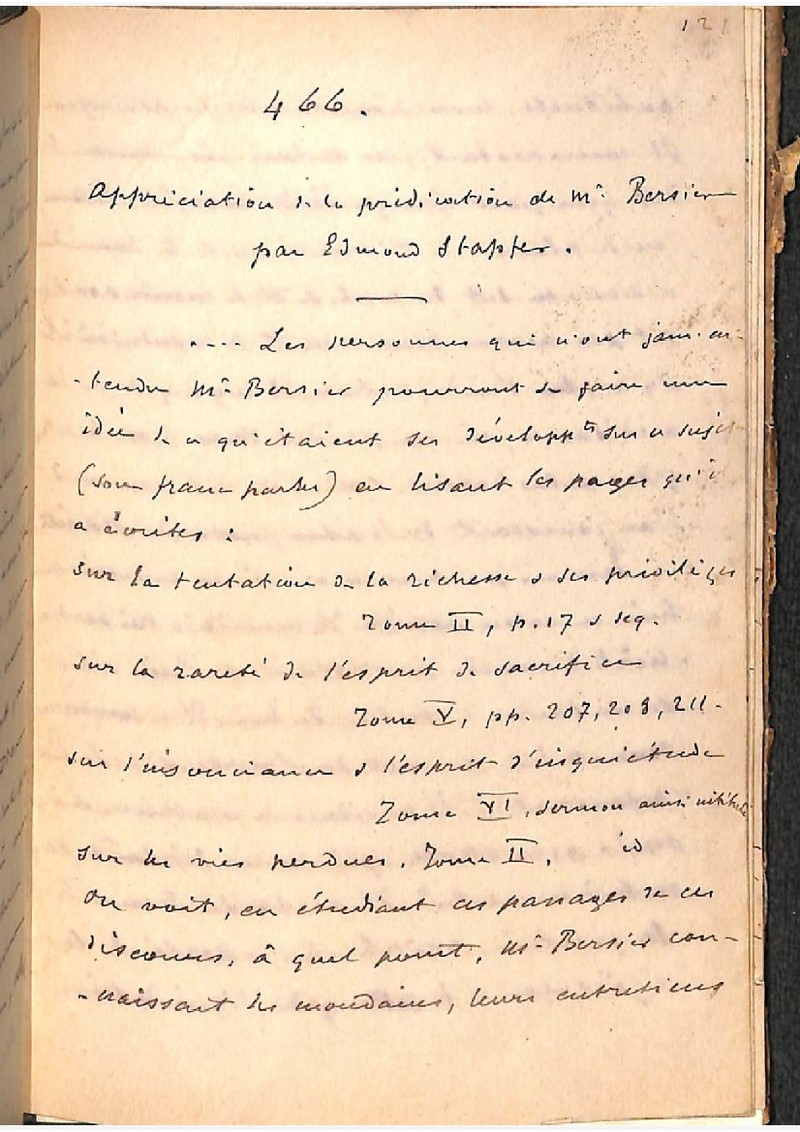 121
466.
Appréciation de la prédication de Mr Bersier
par Edmond Stapfer.
.... Les personnes qui n'ont jam. en-
-tendu Mr Bersier pourront se faire une
idée de ce qu'étaient ses développts sur ce sujet
(son franc parler) en lisant les pages qu'il
a écrites :
sur la tentation de la richesse & ses privilèges
Tome II, p. 17 & seq.
sur la rareté de l'esprit de sacrifice
Tome V, pp. 207, 208, 211.
sur l'insouciance & l'esprit d'inquiétude
Tome VI, sermon ainsi intitulé
sur les vies perdues, Tome II, id
On voit, en étudiant ces passages de ces
discours, à quel point, Mr Bersier con-
-naissait les mondains, leurs entretiens